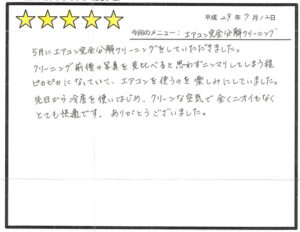 平成 29年 7月 12日
今回のメニュー： エアコン完全分解クリーニング
5月にエアコン完全分解クリーニングをしていただきました。
クリーニング前後の写真を見比べると思わずニンマリしてしまう程
ピカピカになっていて、エアコンを使うのを楽しみにしていました。
先日から冷房を使いはじめ、クリーンな空気で全くニオイもなく
とても快適です。ありがとうございました。